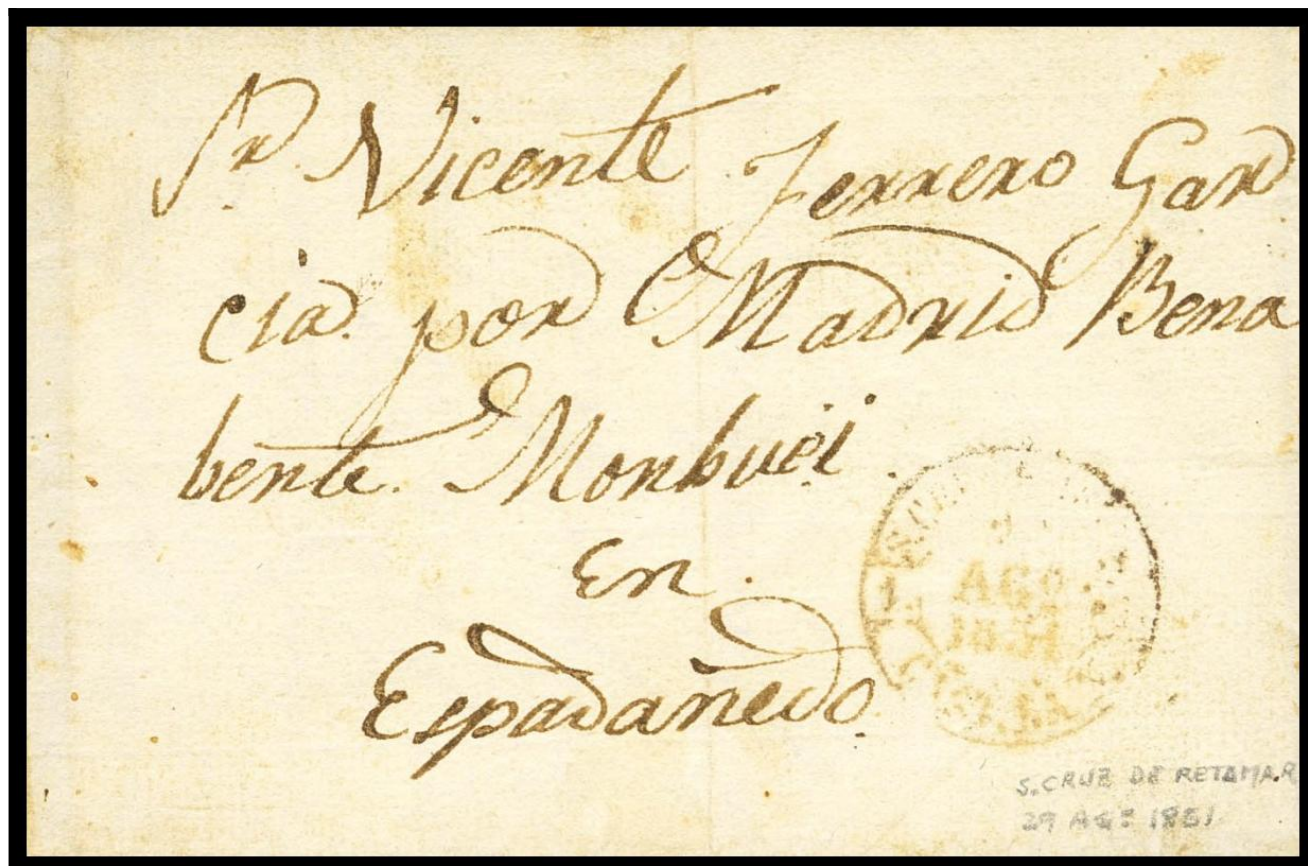 Sr. Vicente Ferrero Gar
cia por Madrid Bena
bente. Monbuei
En
Espadañedo
S. CRU
AGO
1851
S. CRUZ DE RETAMAR
29 AGº 1851